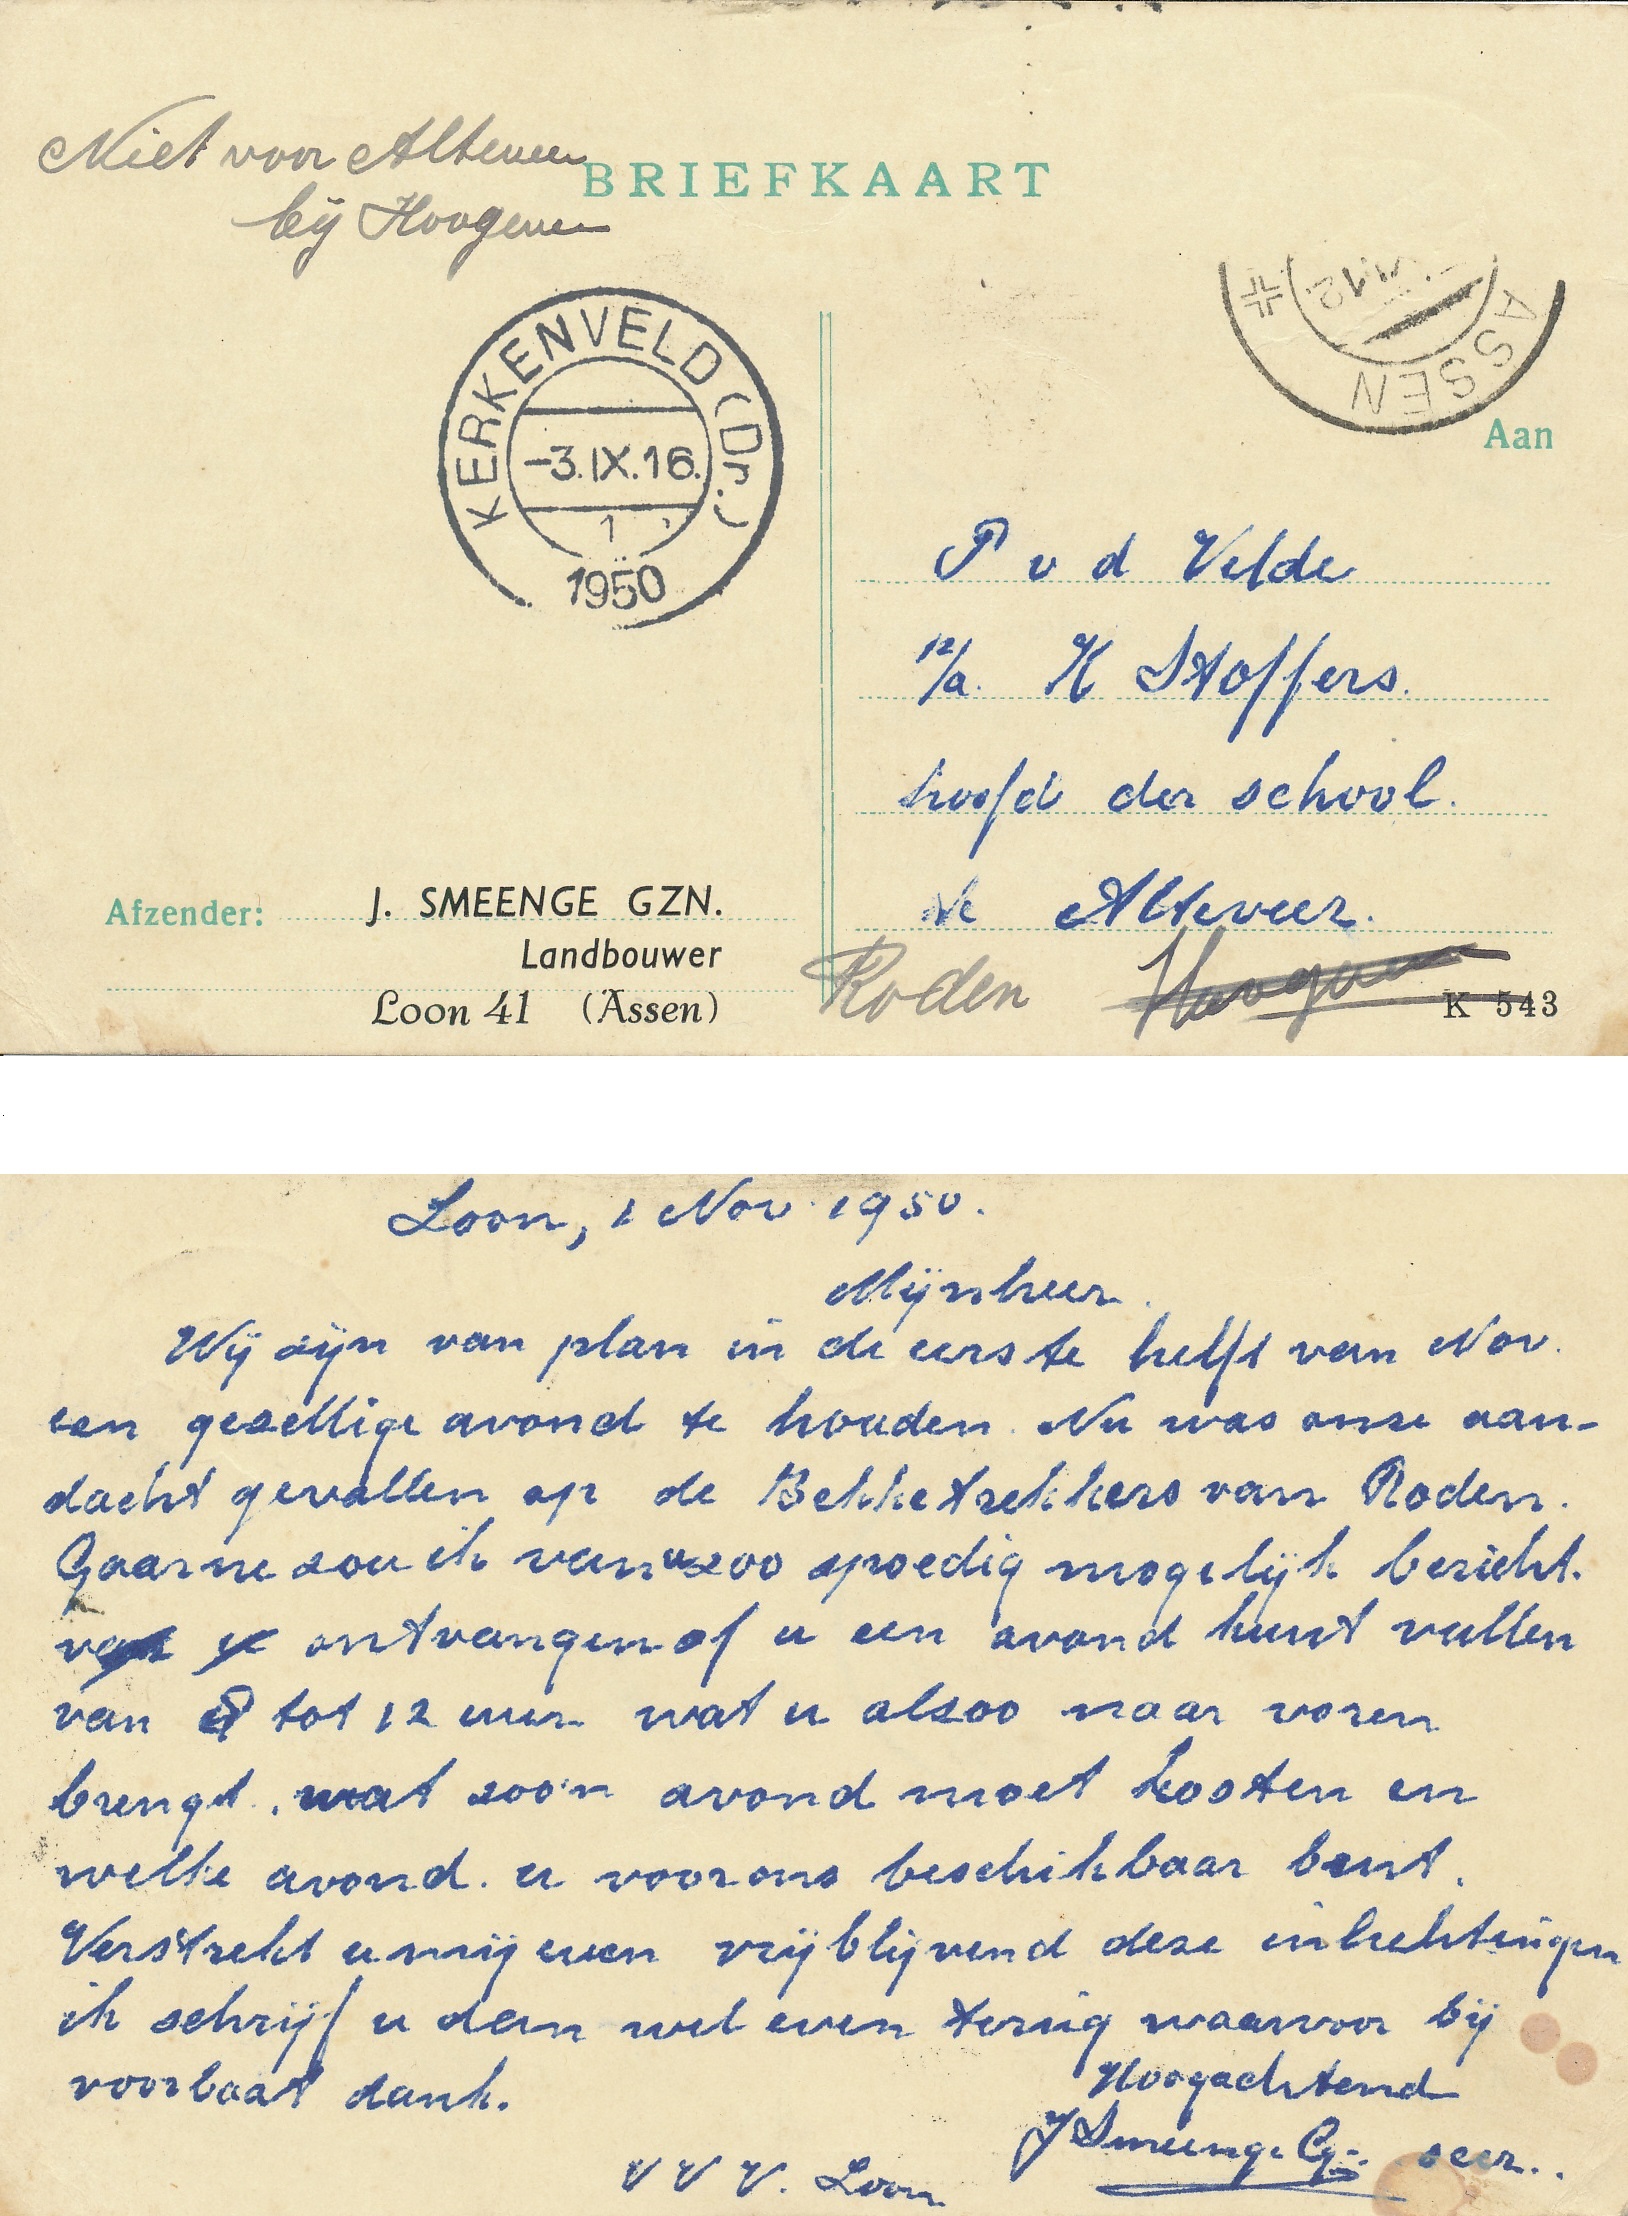 Niet voor Alteveer
bij Hoogeveen
BRIEFKAART
KERKENVELD (Dr.)
-3.IX.16.
1
1950
ASSEN
12
Aan
P v d Velde
p/a. K Stoffers.
hoofd der school.
te Alteveer.
Roden Hoogeveen
K 543
Afzender:
J. SMEENGE GZN.
Landbouwer
Loon 41 (Assen)
Loon, 1 Nov. 1950.
Mijnheer.
Wij zijn van plan in de eerste helft van Nov.
een gezellige avond te houden. Nu was onze aan-
dacht gevallen op de Bekketrekkers van Roden.
Gaarne zou ik van u zoo spoedig mogelijk bericht.
ontvangen of u een avond kunt vullen
van 8 tot 12 uur. wat u alzoo naar voren
brengt. wat zoo'n avond moet kosten en
welke avond. u voor ons beschikbaar bent.
Verstrekt u mij even vrijblijvend deze inlichtingen
ik schrijf u dan wel even terug waarvoor bij
voorbaat dank.
Hoogachtend
J Smeenge Gz. secr..
V V V. Loon